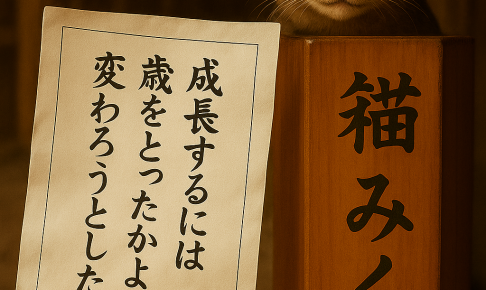 猫みく
成長するには
歳をとったかよ
変わろうとした